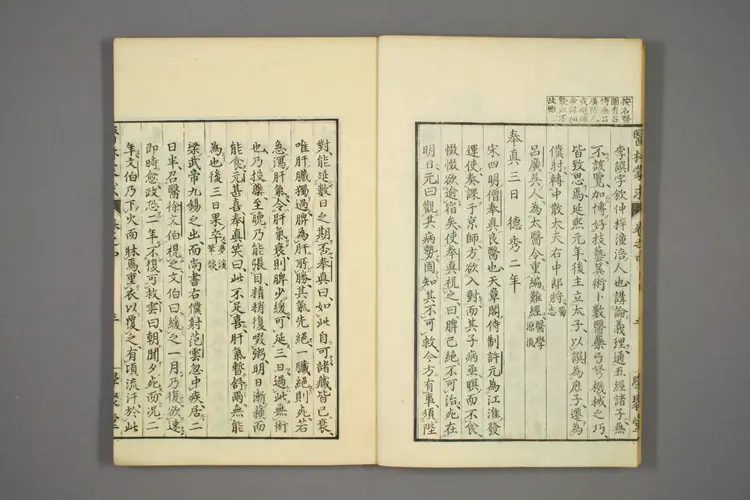 按名醫
圖有呂
李譔字欽仲梓潼涪人也講論義理通五經諸子無
不該覽加博好技藝算術卜數醫藥弓弩機械之巧
皆致思焉延熙元年後主立太子以譔為庶子遷為
僕射轉中散大夫右中郎將蜀志
呂廣吳人為太醫令重編難經醫學源流
奉真三日 德秀二年
宋四明僧奉真良醫也天章閣侍制許元為江淮發
運使奏課于京師方欲入對而其子病亟瞑而不食
惙惙欲逾宿矣使奉真視之曰脾已絕不可治死在
明日元曰觀其病勢固知其不可救今方有事須陛
對能延數日之期否奉真曰如此自可諸藏皆已衰
唯肝臟獨過脾為肝所勝其氣先絕一臟絕則死若
急瀉肝氣令肝氣衰則脾少緩可延三日過此無術
也乃投藥至晚乃能張目精稍復啜粥明日漸蘇而
能食元甚喜奉真笑曰此不足喜肝氣暫舒爾無能
為也後三日果卒夢溪筆談
梁武帝九錫之出而尚書右僕射范雲忽中疾居二
日半召醫徐文伯視之文伯曰緩之一月乃復欲速
即時愈政恐二年不復可救雲曰朝聞夕死而況二
年文伯乃下火而牀焉重衣以覆之有頃流汗於此